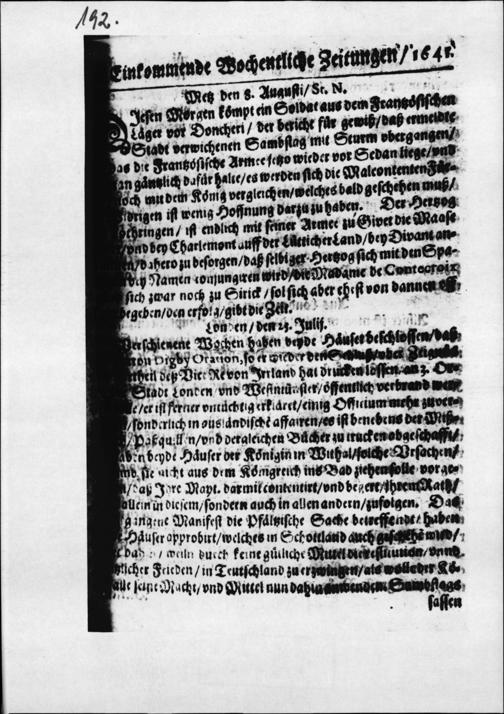 192.
Einkommende Wochentliche Zeitungen / 1641.
Metz den 8. Augusti / St. N.
Diesen Morgen kömpt ein Soldat aus dem Frantzösischen
Läger vor Doncheri / der bericht für gewiß / daß ermeldte
Stadt verwichenen Sambstag mit Sturm obergangen /
das die Frantzösische Armee jetzo wieder vor Sedan liege / und
man gäntzlich dafür halte / es werden sich die Malcontenten Für-
noch mit dem König vergleichen / welches bald geschehen muß /
übrigen ist wenig Hoffnung darzu zu haben. Der Hertzog
Lothringen / ist endlich mit seiner Armee zu Givet die Maase
/ und bey Charlemont auff der Lütticher Land / bey Divant an-
en / dahero zu besorgen / daß selbiger Hertzog sich mit den Spa-
bey Namen conjungiren wird / die Madame de Contecroix
sich zwar noch zu Sirick / sol sich aber ehest von dannen
begeben / den erfolg / gibt die Zeit.
Londen / den 25. Julij.
Verschienene Wochen haben beyde Häuser beschlossen / daß
von Digby Oration, so er wieder den
theil deß Vice Re von Irrland hat drucken lossen, an 3. Or-
Stadt Londen und Westmünster / öffentlich verbrand
/ er ist ferner untüchtig erkläret / einig Officium mehr zu ver-
/ sonderlich in ausländische affairen / es ist benebens der
/ Pasquillen / und dergleichen Bücher zu trucken abgeschafft /
haben beyde Häuser der Königin in Withal / solche Ursachen /
sie nicht aus dem Königreich ins Bad ziehen solle vorge-
/ daß Ihre Mayt. darmit contentirt / und begert / ihrem Rath /
allein in diesem / sondern auch in allen andern / zufolgen. Das
gangene Manifest die Pfältzische Sache betreffende / haben
Häuser approbirt / welches in Schottland auch geschehe wird /
/ weiln durch keine gütliche Mittel die restitution / unnd
Frieden / in Teutschland zu erzwingen / als wolle der Kö-
alle seine Macht / und Mittel nun dahin anwenden. Sambstags
sassen